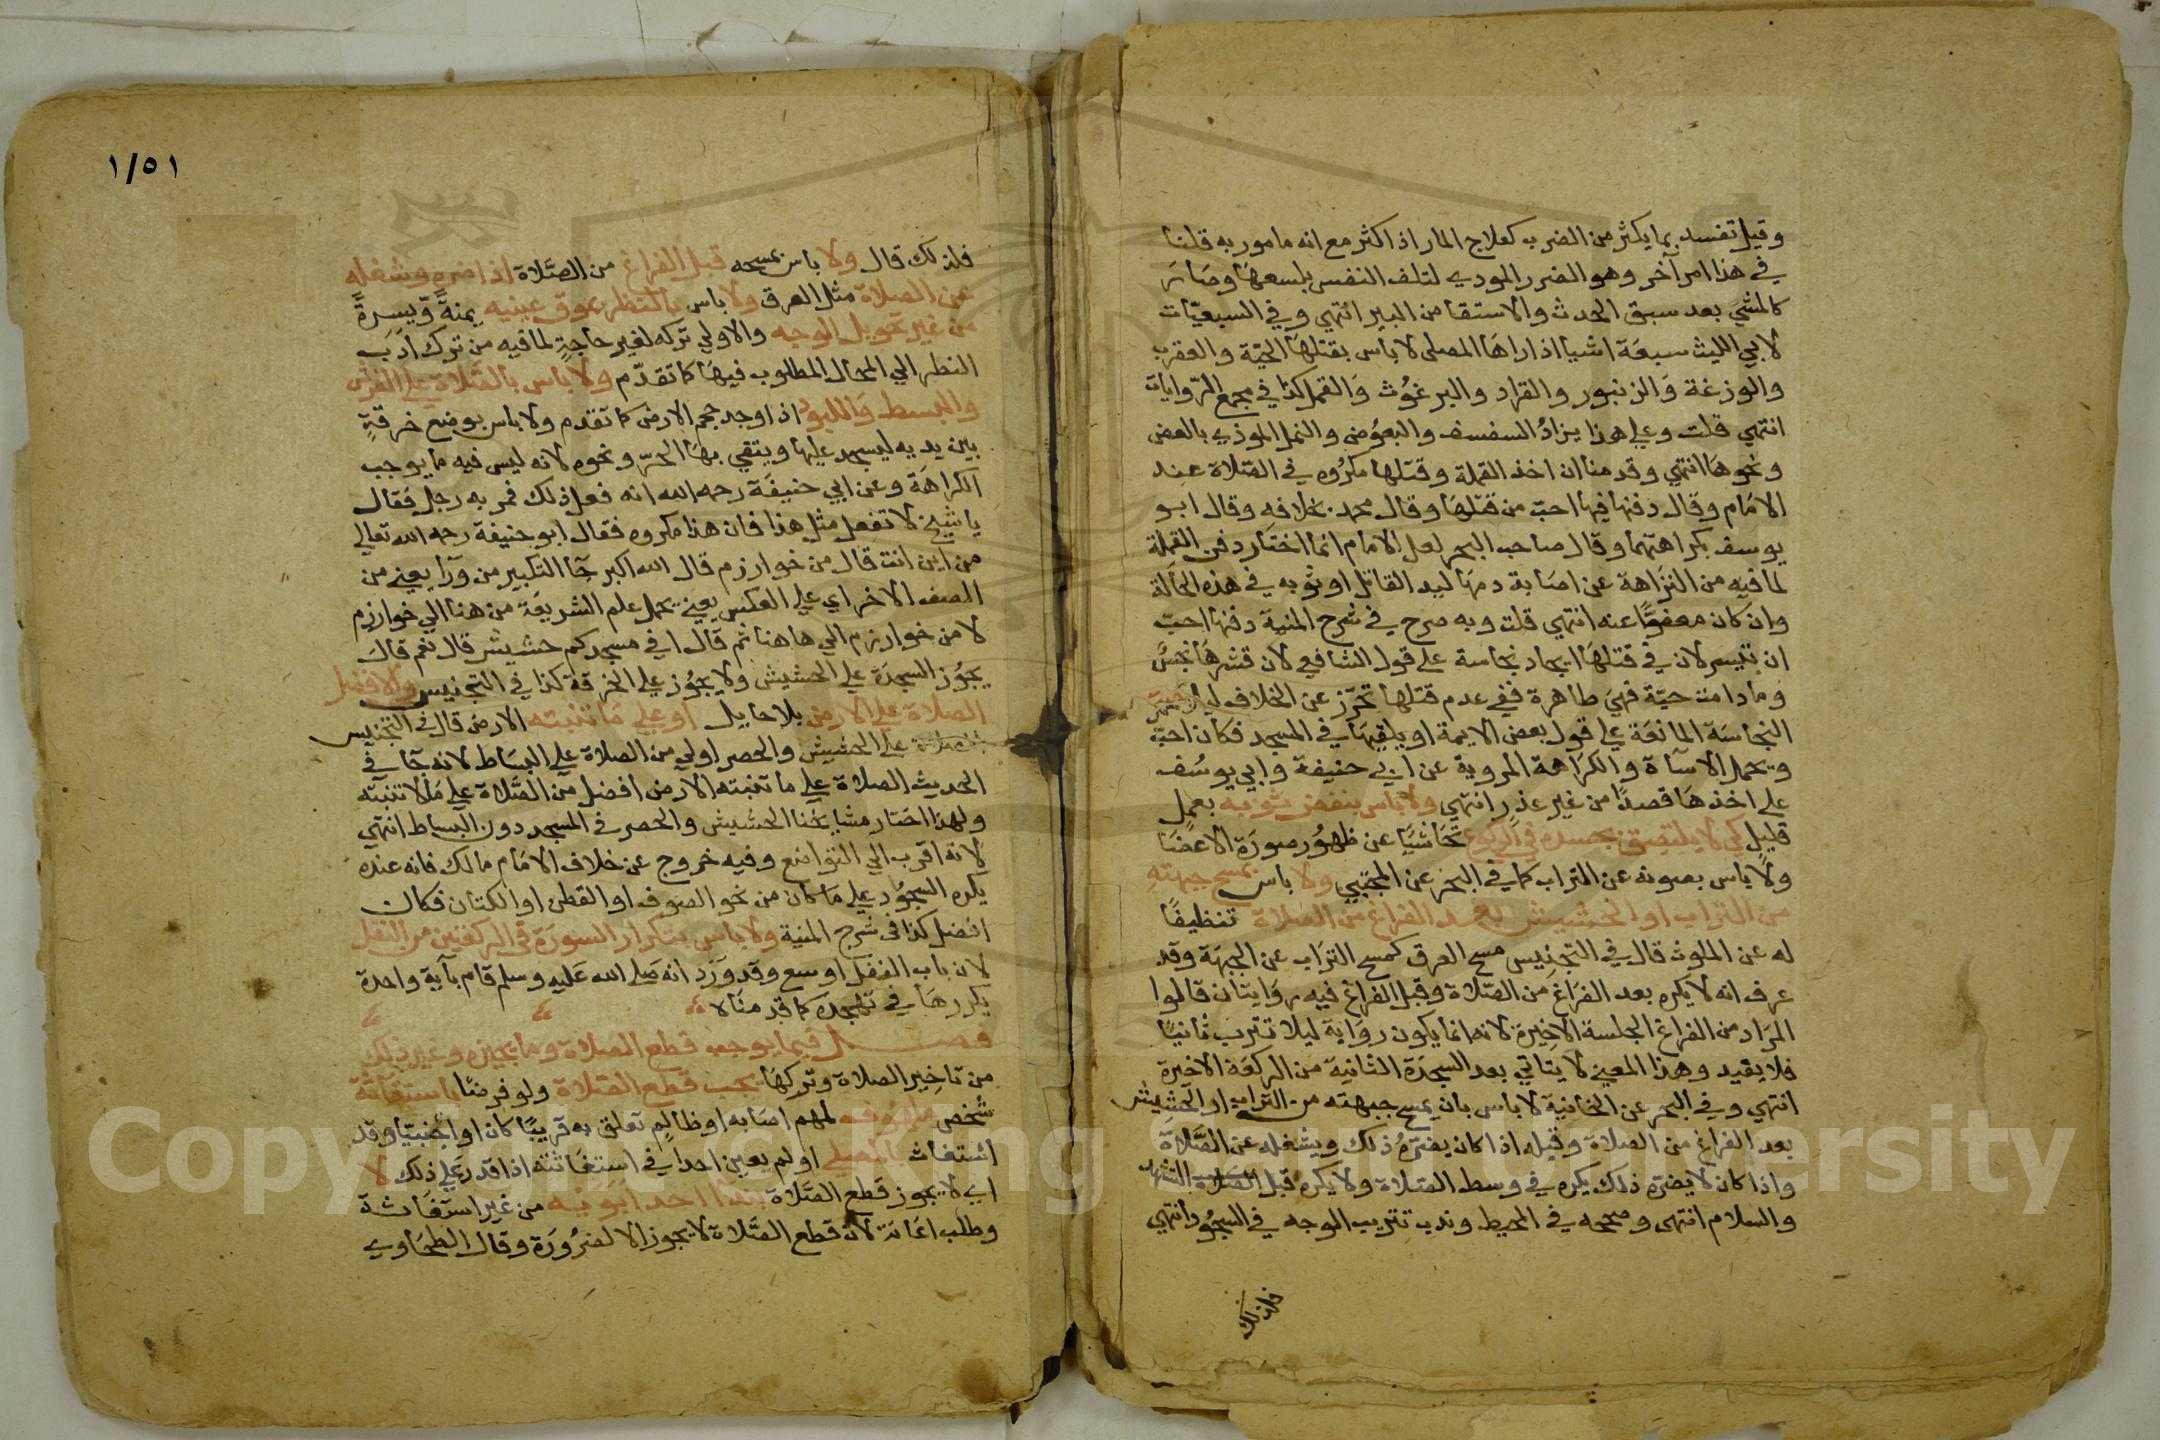 وقيل تفسد بما يكثر من الضرب كعلاج المار اذا كثر مع انه مامور به قلنا
في هذا امر آخر وهو الضرر المودي لتلف النفس بلسعها وصار
كالمشي بعد سبق الحدث والاستقا من البير انتهي وفي السبعيات
لابي الليث سبعة اشيا اذا راها المصلى لا باس بقتلها الحية والعقرب
والوزغة والزنبور والقراد والبرغوث والقمل كذا في مجمع الروايات
انتهي قلت وعلي هذا يزاد السفسف والبعوض والنمل الموذي بالعض
ونحوها انتهي وقدمنا ان اخذ القملة وقتلها مكروه في الصلاة عند
الامام وقال دفنها فيها احب من قتلها وقال محمد بخلافه وقال ابو
يوسف بكراهتهما وقال صاحب البحر لعل الامام انما اختار دفن القملة
لما فيه من النزاهة عن اصابة دمها ليد القاتل او ثوبه في هذه الحالة
وان كان معفوا عنه انتهي قلت وبه صرح في شرح المنية دفنها احب
ان تيسر لان في قتلها ايجاد نجاسة على قول الشافعي لان قشرها نجس
وما دامت حية فهي طاهرة ففي عدم قتلها تحرز عن الخلاف ليلا
النجاسة المانعة علي قول بعض الايمة او يلقيها في المسجد فكان احب
ويحمل الاساة والكراهة المروية عن ابي حنيفة وابي يوسف
على اخذها قصدا من غير عذر انتهي ولا باس بنفض ثوبه بعمل
قليل كي لا يلتصق بجسده في الركوع تحاشيا عن ظهور صورة الاعضا
ولا باس بصونه عن التراب كما في البحر عن المجتبي ولا باس بمسح جبهته
من التراب او الحشيش بعد الفراغ من الصلاة تنظيفا
له عن الملوث قال في التجنيس مسح العرق كمسح التراب عن الجبهة وقد
عرف انه لا يكره بعد الفراغ من الصلاة وقبل الفراغ فيه روايتان قالوا
المراد من الفراغ الجلسة الاخيرة لانه انما يكون رواية ليلا تترب ثانيا
فلا يفيد وهذا المعني لا يتاتي بعد السجدة الثانية من الركعة الاخيرة
انتهي وفي البحر عن الخانية لا باس بان يمسح جبهته من التراب او الحشيش
بعد الفراغ من الصلاة وقبله اذا كان يضره ذلك ويشغله عن الصلاة
واذا كان لا يضره ذلك يكره في وسط الصلاة ولا يكره قبل التشهد
والسلام انتهى وصححه في المحيط وندب تتريب الوجه في السجود انتهي
فلذلك
١/٥١
فلذلك قال ولا باس بمسحه قبل الفراغ من الصلاة اذا ضره وشغله
عن الصلاة مثل العرق ولا باس بالنظر بموق عينيه يمنة ويسرة
من غير تحويل الوجه والاولي تركه لغير حاجة لما فيه من ترك ادب
النظر الي المحال المطلوب فيها كما تقدم ولا باس بالصلاة علي الفرش
والبسط واللبود اذا وجد حجم الارض كما تقدم ولا باس بوضع خرقة
بين يديه ليسجد عليها ويتقي بها الحر ونحوه لانه ليس فيه ما يوجب
الكراهة وعن ابي حنيفة رحمه الله انه فعل ذلك فمر به رجل فقال
يا شيخ لا تفعل مثل هذا فان هذا مكروه فقال ابو حنيفة رحمه الله تعالي
من اين انت قال من خوارزم قال الله اكبر جا التكبير من ورا يعني من
الصف الاخر اي علي العكس يعني يحمل علم الشريعة من هنا الي خوارزم
لا من خوارزم الي هاهنا ثم قال افي مسجدكم حشيش قال نعم قال
يجوز السجدة علي الحشيش ولا يجوز علي الخرقة كذا في التجنيس والافضل
الصلاة علي الارض بلا حايل او علي ما تنبته الارض قال في التجنيس
الصلاة علي الحشيش والحصر اولي من الصلاة علي البساط لانه جا في
الحديث الصلاة علي ما تنبته الارض افضل من الصلاة علي ما لا تنبته
ولهذا اختار مشايخنا الحشيش والحصر في المسجد دون البساط انتهي
لانه اقرب الي التواضع وفيه خروج عن خلاف الامام مالك فانه عنده
يكره السجود علي ما كان من نحو الصوف او القطن او الكتان فكان
افضل كذا في شرح المنية ولا باس بتكرار السورة في الركعتين من النفل
لان باب النفل اوسع وقد ورد انه صلي الله عليه وسلم قام بآية واحدة
يكررها في تهجده كما قدمنا
فصل فيما يوجب قطع الصلاة وما يجيزه وغير ذلك
من تاخير الصلاة وتركها يجب قطع الصلاة ولو فرضا باستغاثة
شخص ملهوف لمهم اصابه او ظالم تعلق به قريبا كان او اجنبيا وقد
استغاث بالمصلي او لم يعين احدا في استغاثته اذا قدر علي ذلك لا
اي لا يجوز قطع الصلاة بندا احد ابويه من غير استغاثة
وطلب اعانة لان قطع الصلاة لا يجوز الا لضرورة وقال الطحاوي